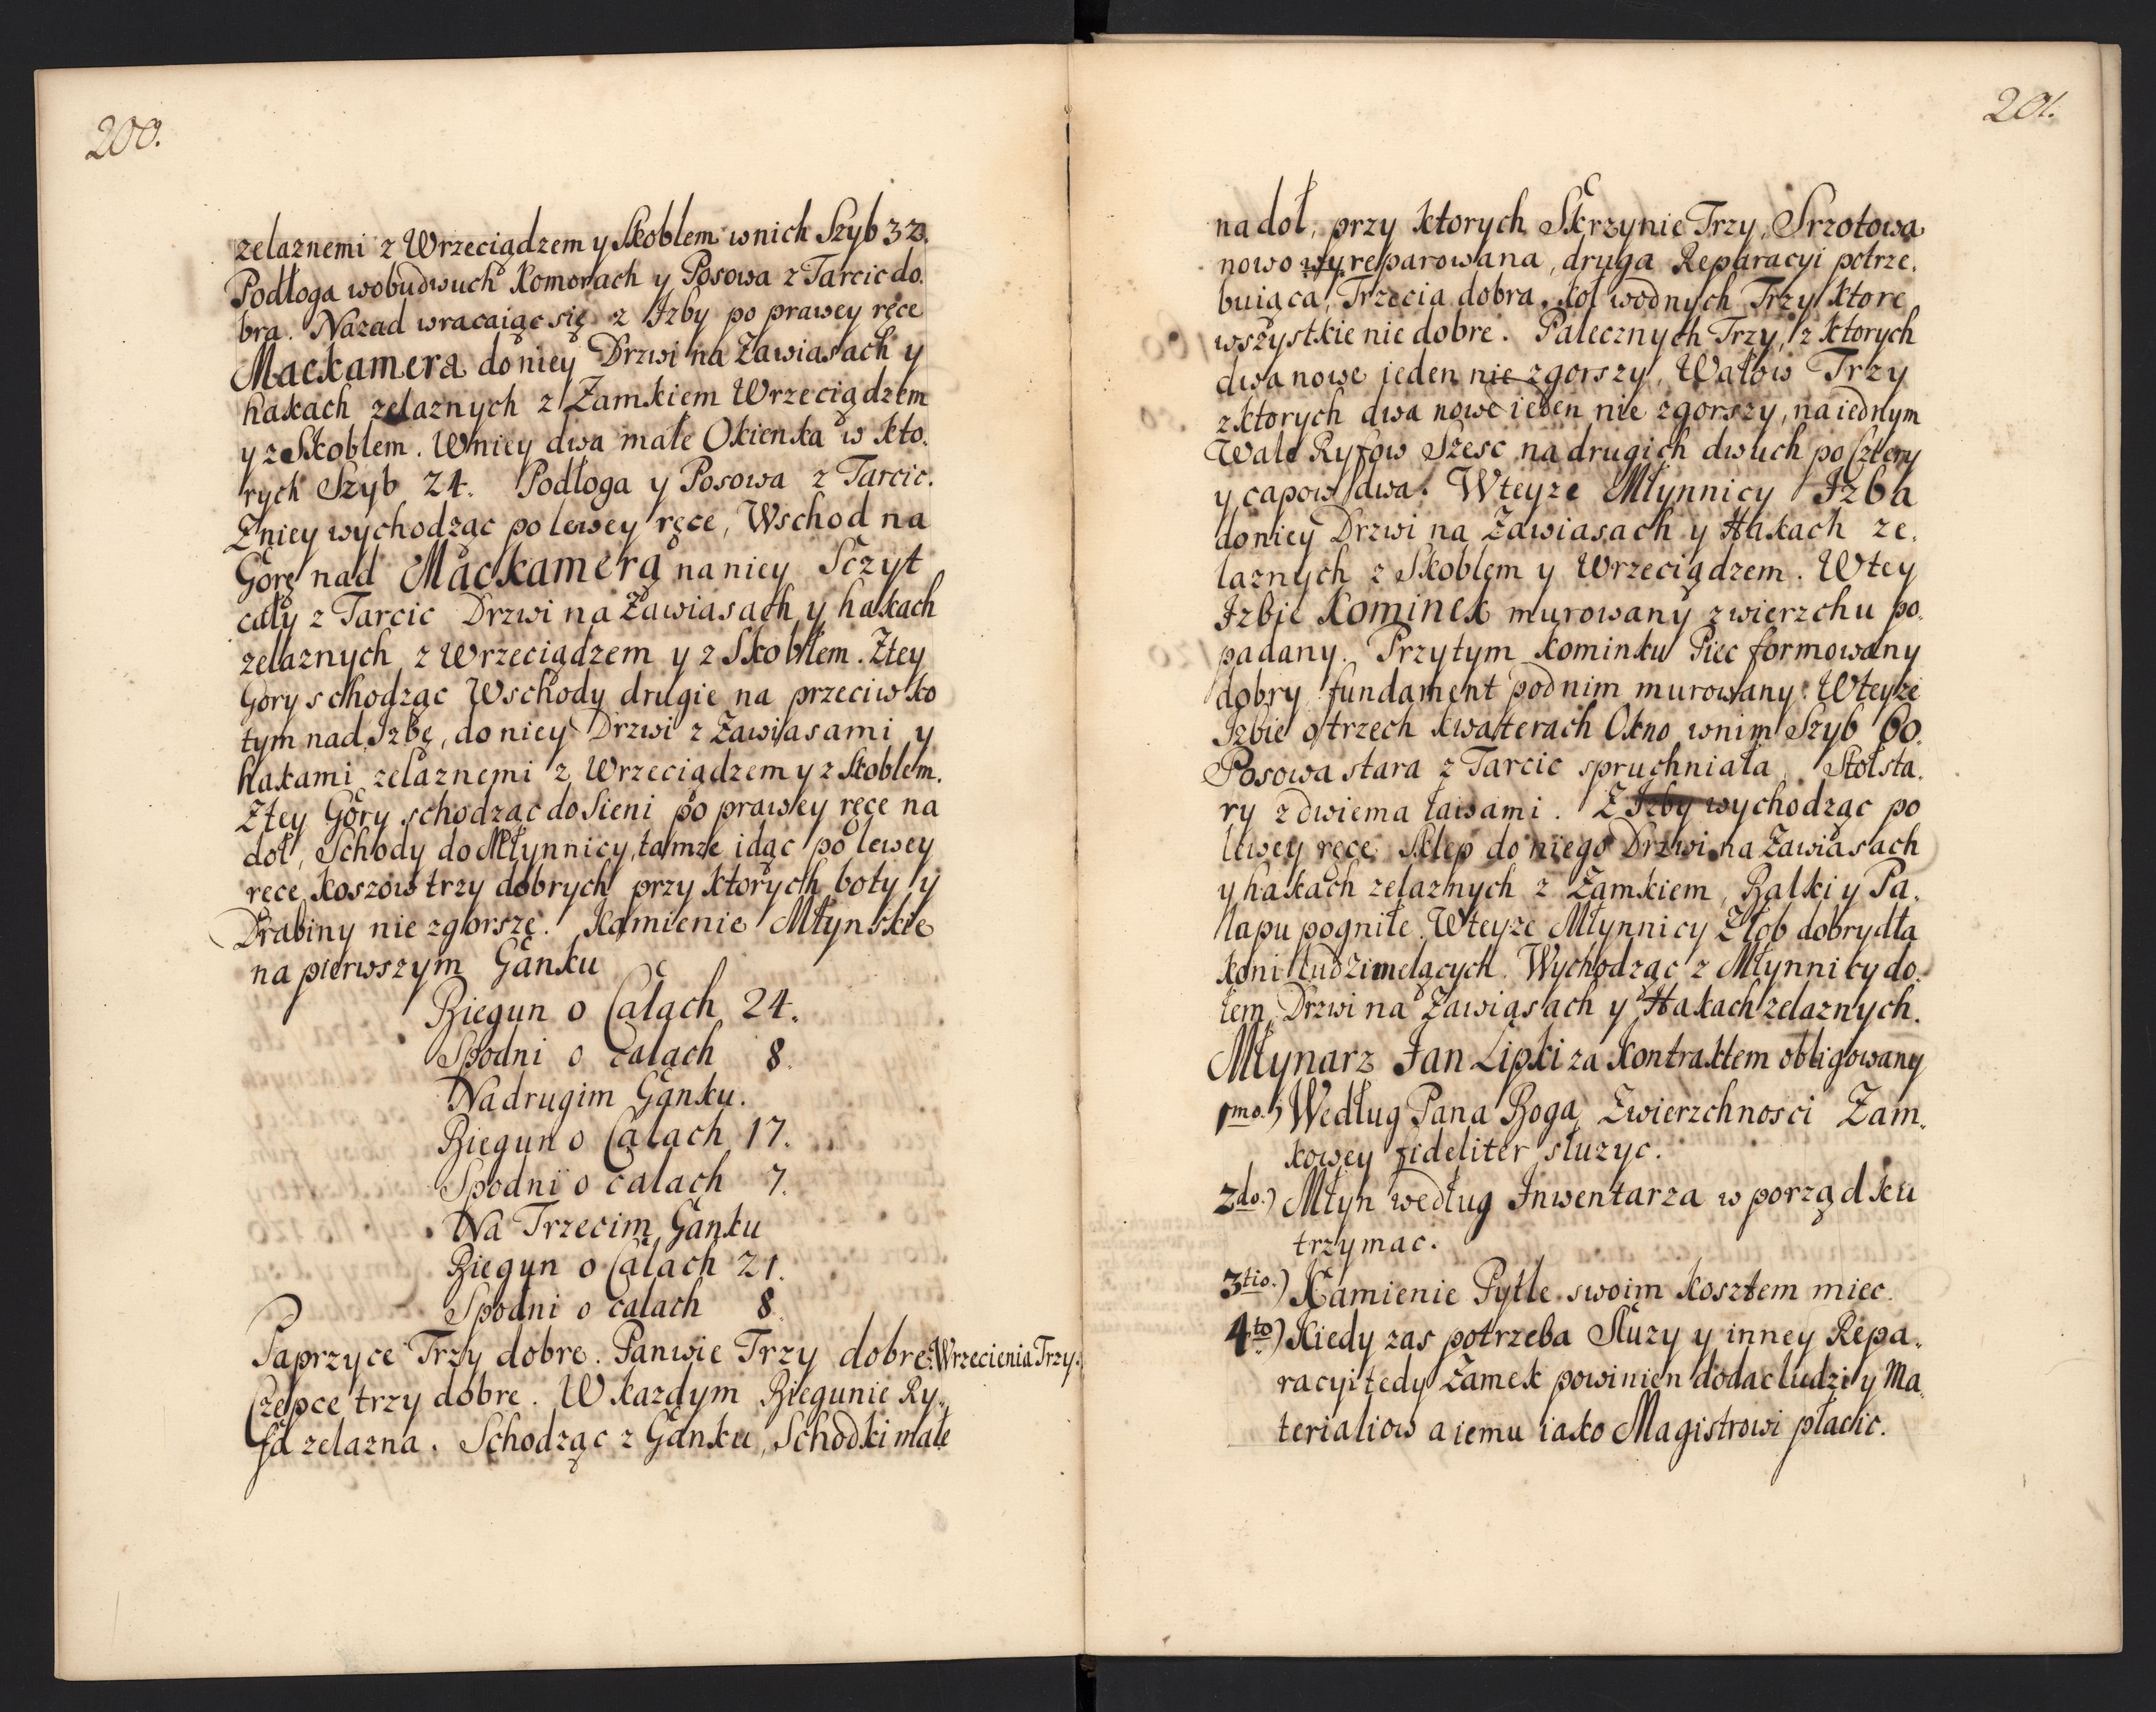 200.
zelaznemi z Wrzeciądzem y Skoblem wnich Szyb 32.
Podłoga wobudwuch Komorach y Posowa z Tarcic do.
bra. Nazad wracaiąc się z Izby po prawey ręce
Mackamera doniey Drzwi na Zawiasach y
hakach zelaznych z Zamkiem Wrzeciądzem
y z Skoblem. Wniey dwa małe Okienka w kto.
rych Szyb 24. Podłoga y Posowa z Tarcic.
Zniey wychodząc po lewey ręce, Wschod na
Gorę nad Mackamerą naniey Sczyt
cały z Tarcic Drzwi na Zawiasach y hakach
zelaznych z Wrzeciądzem y z Skoblem. Ztey
Gory schodząc Wschody drugie na przeciwko
tym nad Izbę, do niey Drzwi z Zawiasami y
hakami zelaznemi z Wrzeciądzem y z Skoblem.
Ztey Gory schodząc do Sieni po prawey ręce na
doł, Schody do Młynnicy, tamze idąc po lewey
ręce Koszow trzy dobrych przy ktorych boty y
Drabiny nie zgorsze. Kamienie Młynskie
na pierwszym Ganku
Biegun o Calach 24.
Spodni o calach 8.
Nadrugim Ganku.
Biegun o Calach 17.
Spodni o calach 7.
Na Trzecim Ganku
Biegun o Calach 21.
Spodni o calach 8.
Paprzyce Trzy dobre. Panwie Trzy dobre. Wrzecienia Trzy.
Czepce trzy dobre. W kazdym Biegunie Ry„
fa zelazna. Schodząc z Ganku, Schodki małe
201.
na doł, przy ktorych Skrzynie Trzy, Srzotowa
nowo wyreparowana, druga Reparacyi potrze.
buiąca, Trzecia dobra. Koł wodnych Trzy ktore
wszystkie nie dobre. Palecznych Trzy, z ktorych
dwa nowe ieden nie zgorszy, Wałow Trzy
z ktorych dwa nowe ieden nie zgorszy, na iednym
Wale Ryfow Szesc na drugich dwuch po Cztery
y capow dwa. Wteyze Młynnicy Izba
do niey Drzwi na Zawiasach y Hakach ze.
laznych z Skoblem y Wrzeciądzem. Wtey
Izbie Kominek murowany zwierzchu po.
padany. Przytym Kominku Piec formowany
dobry fundament pod nim murowany. Wteyze
Izbie o trzech kwaterach Okno wnim Szyb 60.
Posowa stara z Tarcic spruchniała, Stoł sta.
ry z dwiema ławami. Z Izby wychodząc po
lewey ręce Sklep do niego Drzwi na Zawiasach
y hakach zelaznych z Zamkiem, Balki y Pa.
łapu pogniłe. Wteyze Młynnicy Złob dobry dla
koni ludzi melących. Wychodząc z Młynnicy do.
łem Drzwi na Zawiasach y Hakach zelaznych.
Młynarz Jan Lipki za Kontraktem obligowany
1mo.) Według Pana Boga Zwierzchnosci Zam„
kowey fideliter słuzyc.
2do.) Młyn według Inwentarza w porządku
trzymac.
3tio.) Kamienie Pytle swoim kosztem miec.
4to) Kiedy zas potrzeba Sluzy y inney Repa„
racyi tedy Zamek powinien dodac ludzi y Ma„
terialiow a iemu iako Magistrowi płacic.